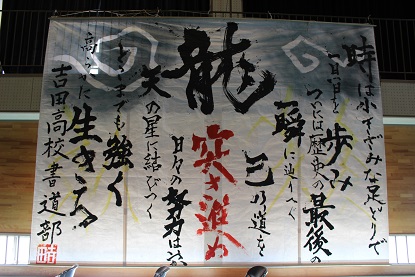 時は小きざみな足どりで
一日一日を歩み
ついには歴史の最後の
瞬に辿りつく
己の道を
龍
突き進め
日々の努力は
天の星に結びつく
どこまでも強く
高らかに生きる
吉田高校書道部